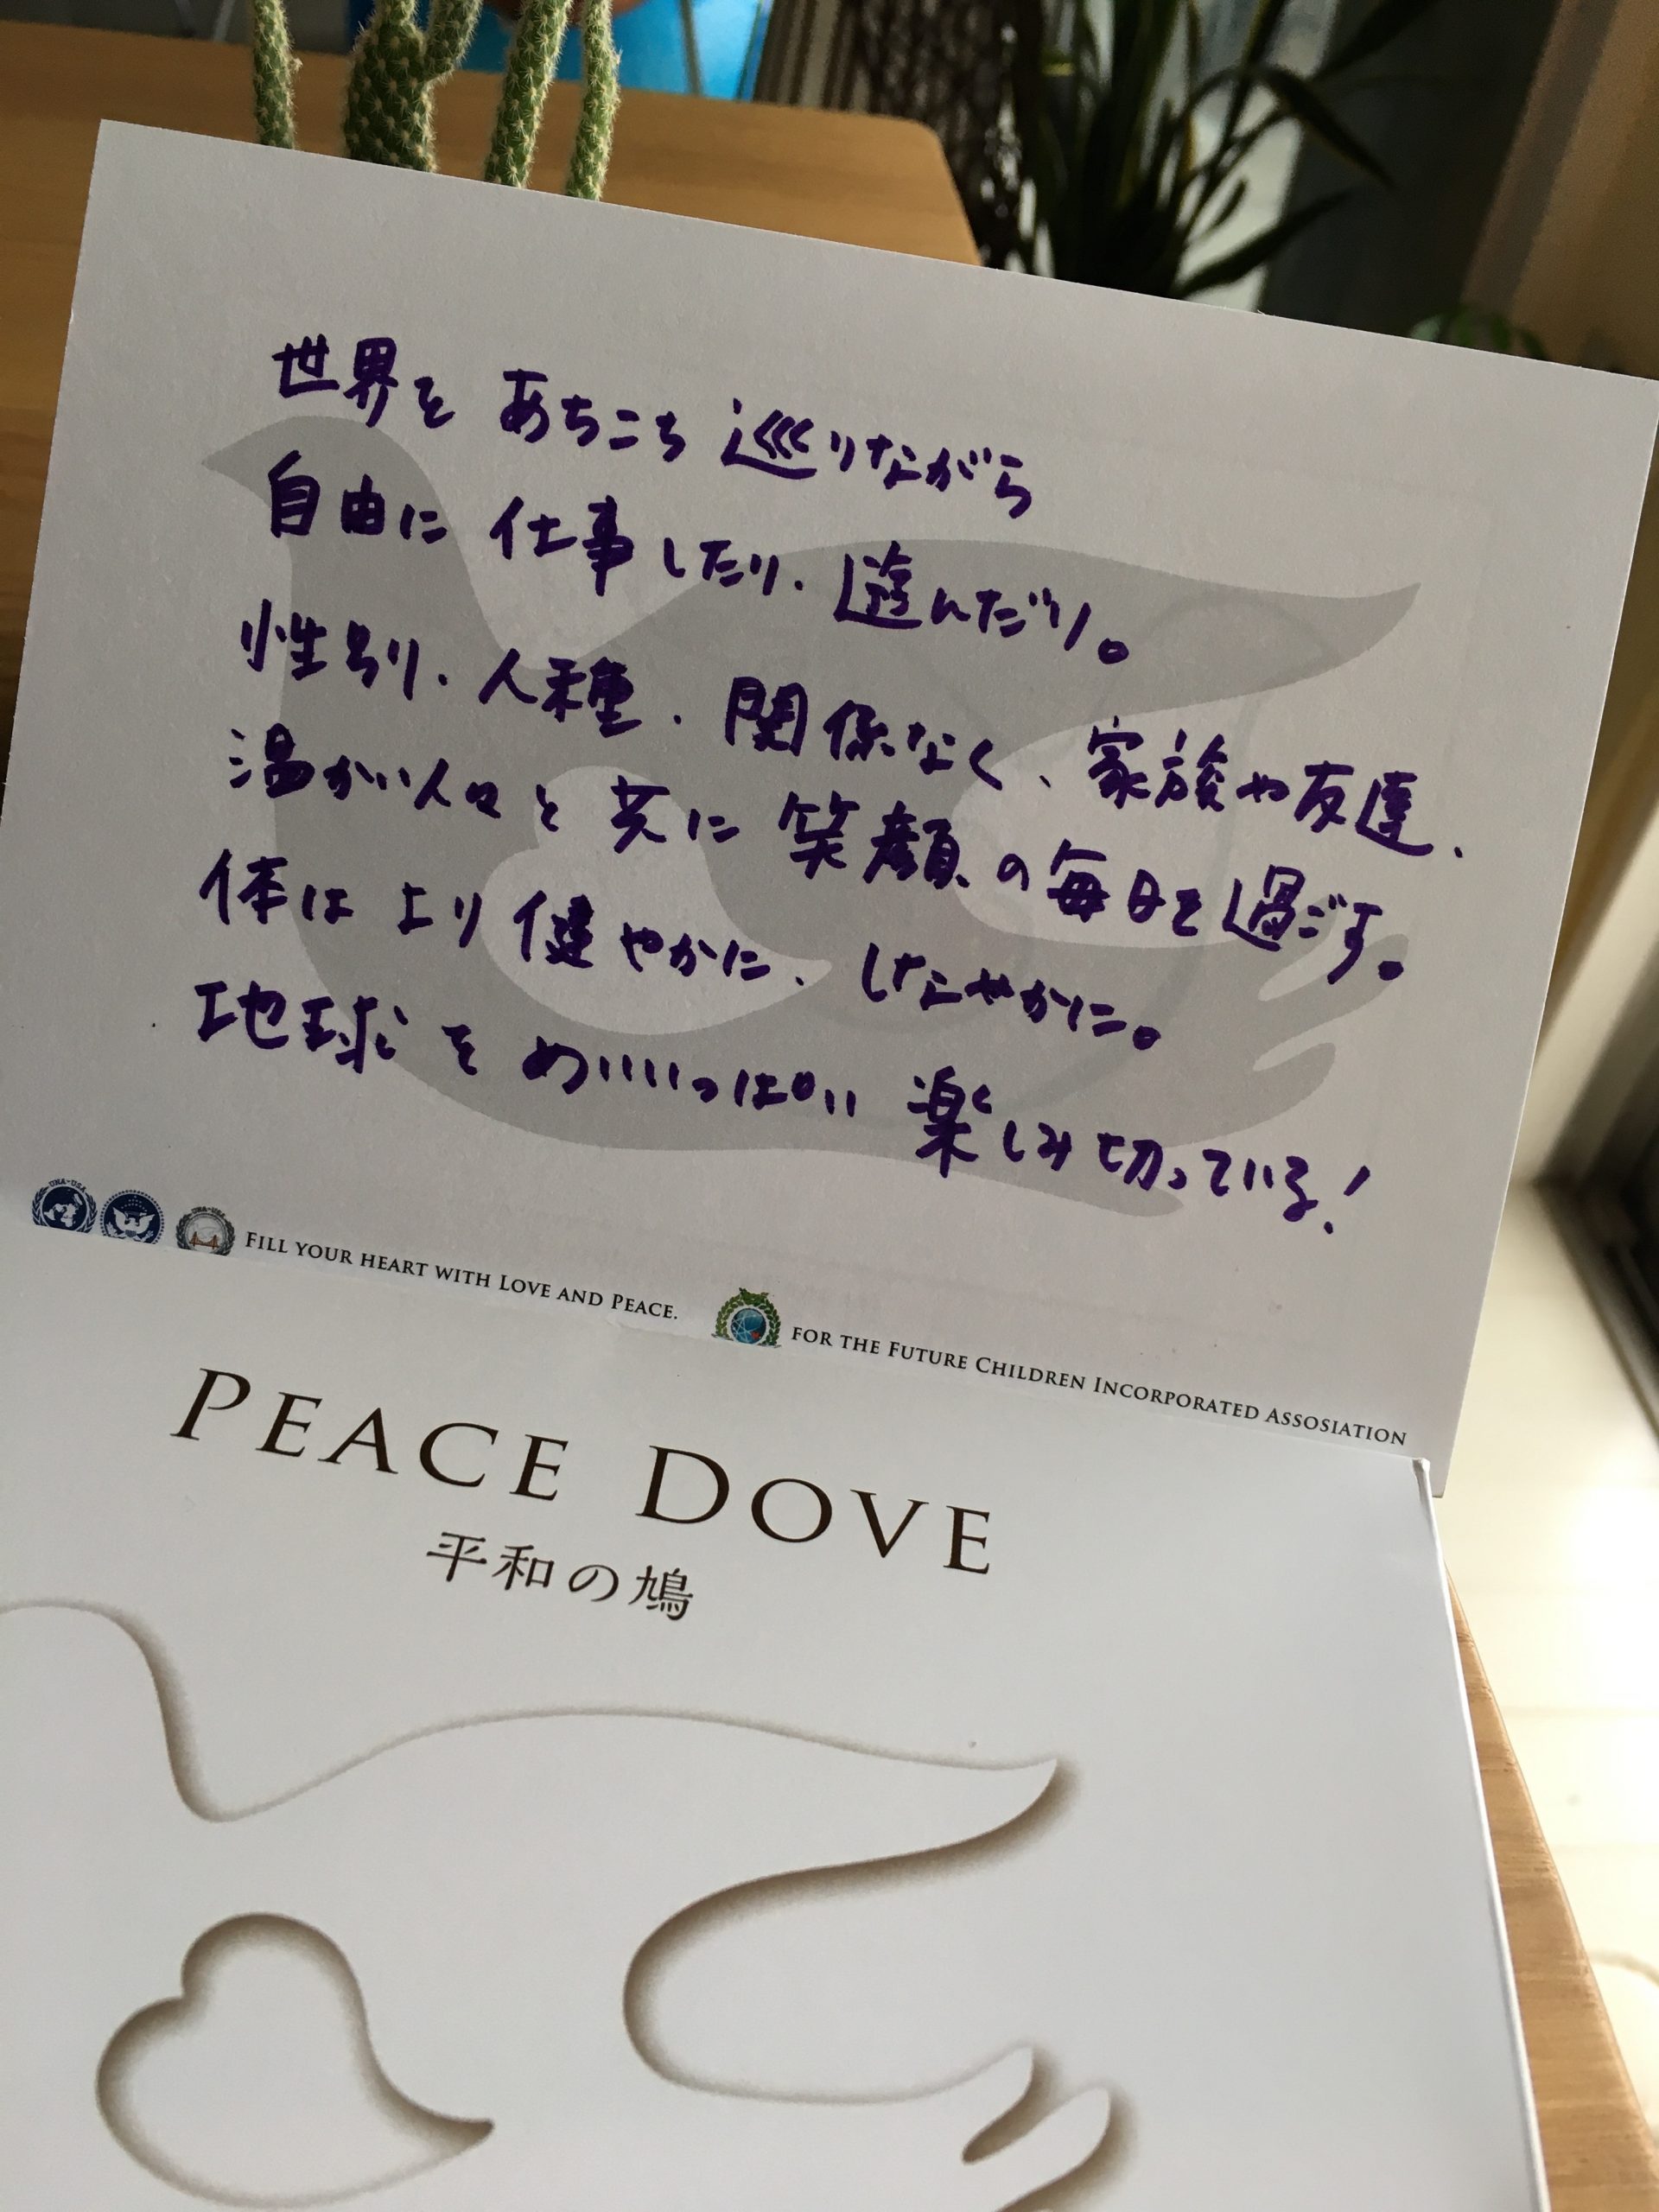 世界を あちこち 巡りながら
自由に 仕事したり、遊んだり。
性別、人種、関係なく、家族や友達、
温かい人々と共に笑顔の毎日を過ごす。
体はより健やかに、しなやかに。
地球をめいいいっぱい 楽しみ切っている!
UNA-USA
UNA-USA
FILL YOUR HEART WITH LOVE AND PEACE.
FOR THE FUTURE CHILDREN INCORPORATED ASSOSIATION
PEACE DOVE
平和の鳩